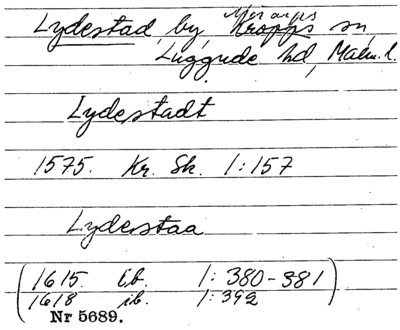 Mörarps
Lydestad, by, Kropps sn,
Luggude hd, Malm. l.
Lydestadt
1575. Kr. Sk. 1:157
Lyderstaa
(1615. ib. 1: 380-381)
1618 ib. 1: 392
Nr 5689.